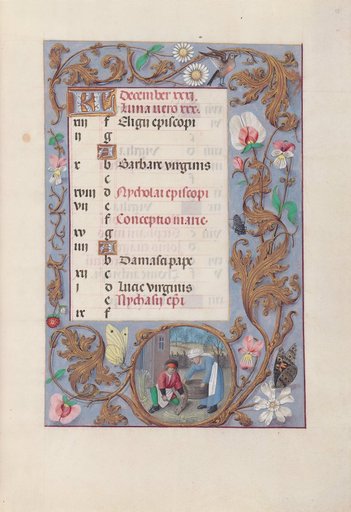 KL December xxxj
Luna vero xxx.
xiij f Eligii episcopi
ij g
A
x b Barbare virginis
c
xviij d Nycholai episcopi
vij e
f Conceptio marie
xv g
iiij A
b Damasci pape
xij c
j d Lucie virginis
e Nychasij epi
ix f